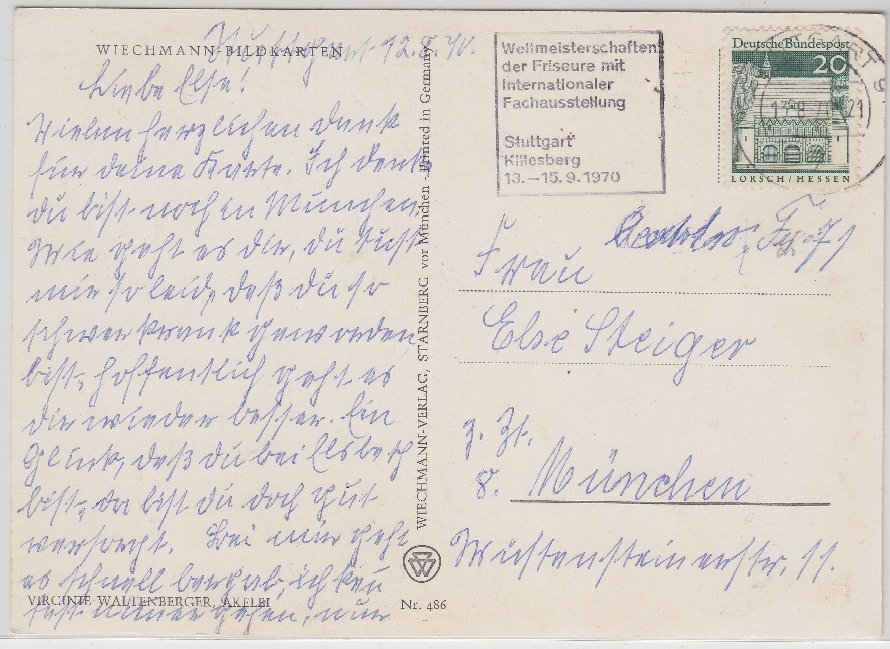 WIECHMANN-BILDKARTEN
Stuttgart 12.8.70.
Liebe Else!
Vielen herzlichen Dank
für deine Karte. Ich denke
du bist noch in München.
Wie geht es dir, du tust
mir so leid, daß du so
schwer krank geworden
bist, hoffentlich geht es
dir wieder besser. Ein
Glück, daß du bei Elsbeth
bist, da bist du doch gut
versorgt. Bei mir geht
es schnell bergab, ich kan
fast nimer gehen, nur
VIRGINIE WALTENBERGER, AKELEI
Nr. 486
WIECHMANN-VERLAG, STARNBERG vor München - Printed in Germany
Weltmeisterschaften
der Friseure mit
Internationaler
Fachausstellung
Stuttgart
Killesberg
13.–15.9.1970
Deutsche Bundespost
20
LORSCH/HESSEN
Frau
Else Steiger
z. Zt.
8. München